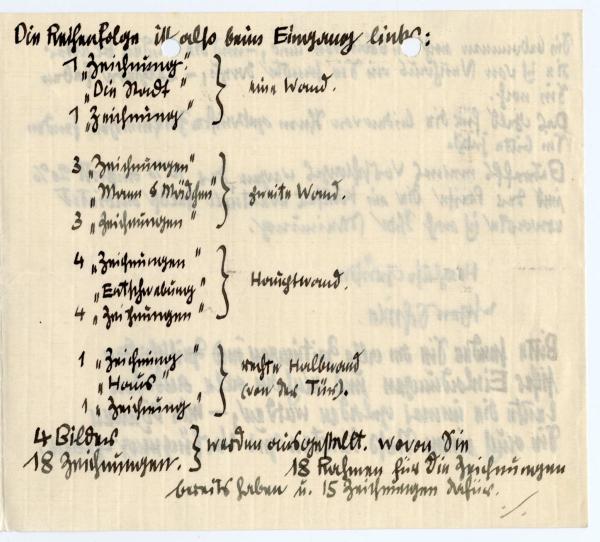 Die Reihenfolge ist also beim Eingang links:
1 „Zeichnung"
„Die Stadt" } eine Wand.
1 „Zeichnung"
3 „Zeichnungen"
„Mann & Mädchen" } zweite Wand.
3 „Zeichnungen"
4 „Zeichnungen"
„Entschwebung" } Hauptwand.
4 „Zeichnungen"
1 „Zeichnung" rechte Halbwand
„Haus" } (von der Tür).
1 „Zeichnung"
4 Bilder } werden ausgestellt. wovon Sie
18 Zeichnungen. 18 Rahmen für die Zeichnungen
bereits haben u. 15 Zeichnungen dafür.
./.